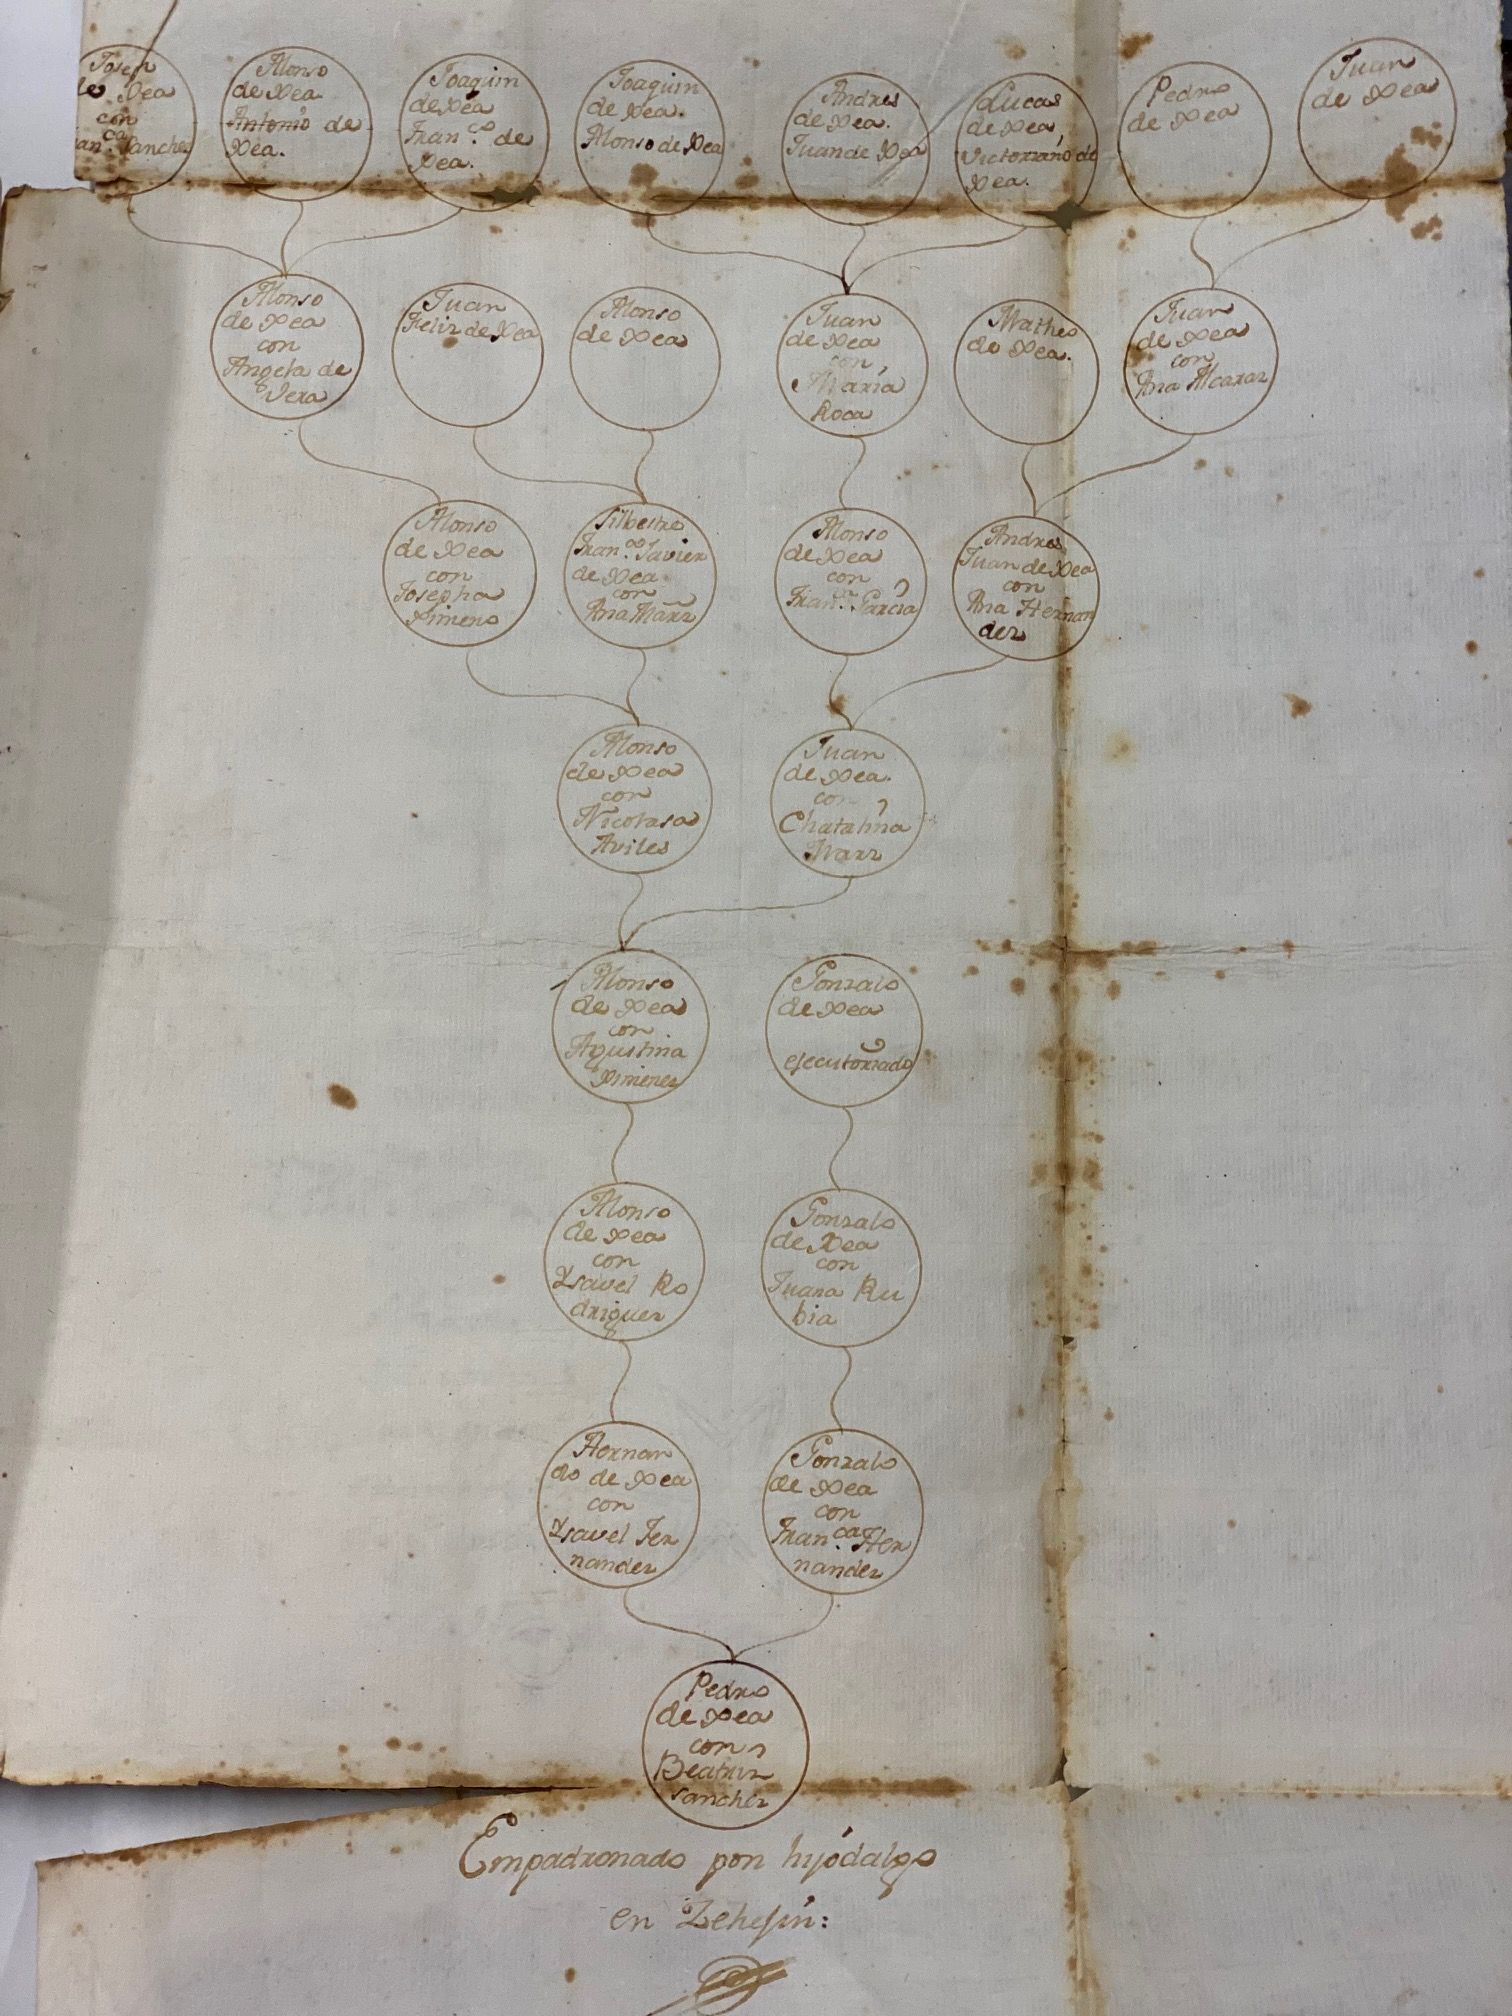 Josep
de Xea
con
Fran.ca Sanchez
Alonso
de Xea.
Antonio de
Xea.
Joaquin
de Xea
Fran.co de
Xea.
Joaquin
de Xea.
Alonso de Xea
Andres
de Xea.
Juan de Xea
Lucas
de Xea,
Victorrano de
Xea.
Pedro
de Xea
Juan
de Xea
Alonso
de Xea
con
Angela de
Vera
Juan
Feliz de Xea
Alonso
de Xea
Juan
de Xea
con
Maria
Roca
Matheo
de Xea.
Juan
de Xea
con
Ana Alcaraz
Alonso
de Xea
con
Josepha
Ximeno
Silbestre
Fran.co Javier
de Xea
con
Ana Marz
Alonso
de Xea
con
Fran.ca Garcia
Andres
Juan de Xea
con
Ana Hernan
dez
Alonso
de Xea
con
Nicolasa
Aviles
Juan
de Xea.
con
Chatalina
Marz
Alonso
de Xea
con
Agustina
Ximenez
Gonzalo
de Xea
ejecutoriado
Alonso
de Xea
con
Ysavel Ro
driguez
Gonzalo
de Xea
con
Juana Ru
bia
Hernan
do de Xea
con
Ysavel Fer
nandez
Gonzalo
de Xea
con
Fran.ca Her
nandez
Pedro
de Xea
con
Beatriz
Sanchez
Empadronado por hijodalgo
en Zehejin: